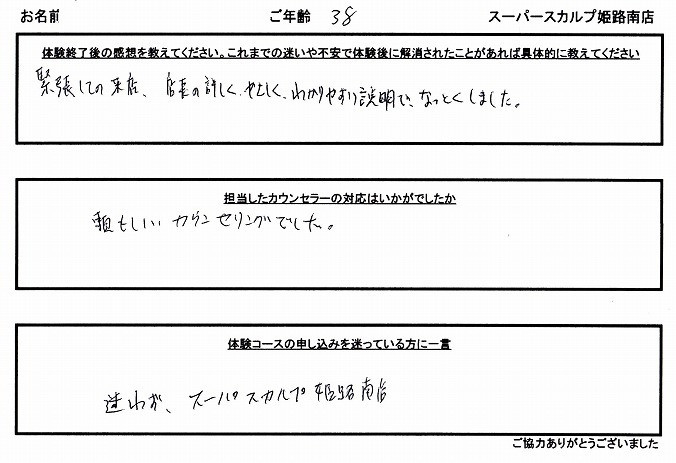 お名前 ご年齢 38 スーパースカルプ姫路南店
体験終了後の感想を教えてください。これまでの迷いや不安で体験後に解消されたことがあれば具体的に教えてください
緊張しての来店、店長の詳しく、やさしく、わかりやすい説明で、なっとくしました。
担当したカウンセラーの対応はいかがでしたか
頼もしいカウンセリングでした。
体験コースの申し込みを迷っている方に一言
迷わず、スーパスカルプ姫路南店
ご協力ありがとうございました